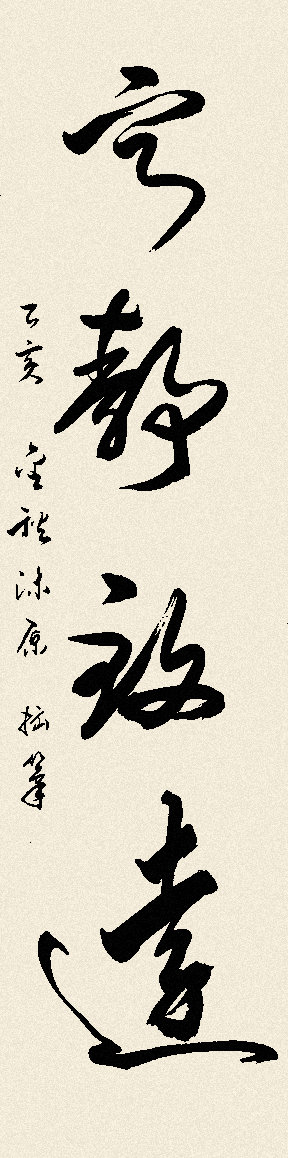 宁静致远
乙亥 金秋沐原 拙笔